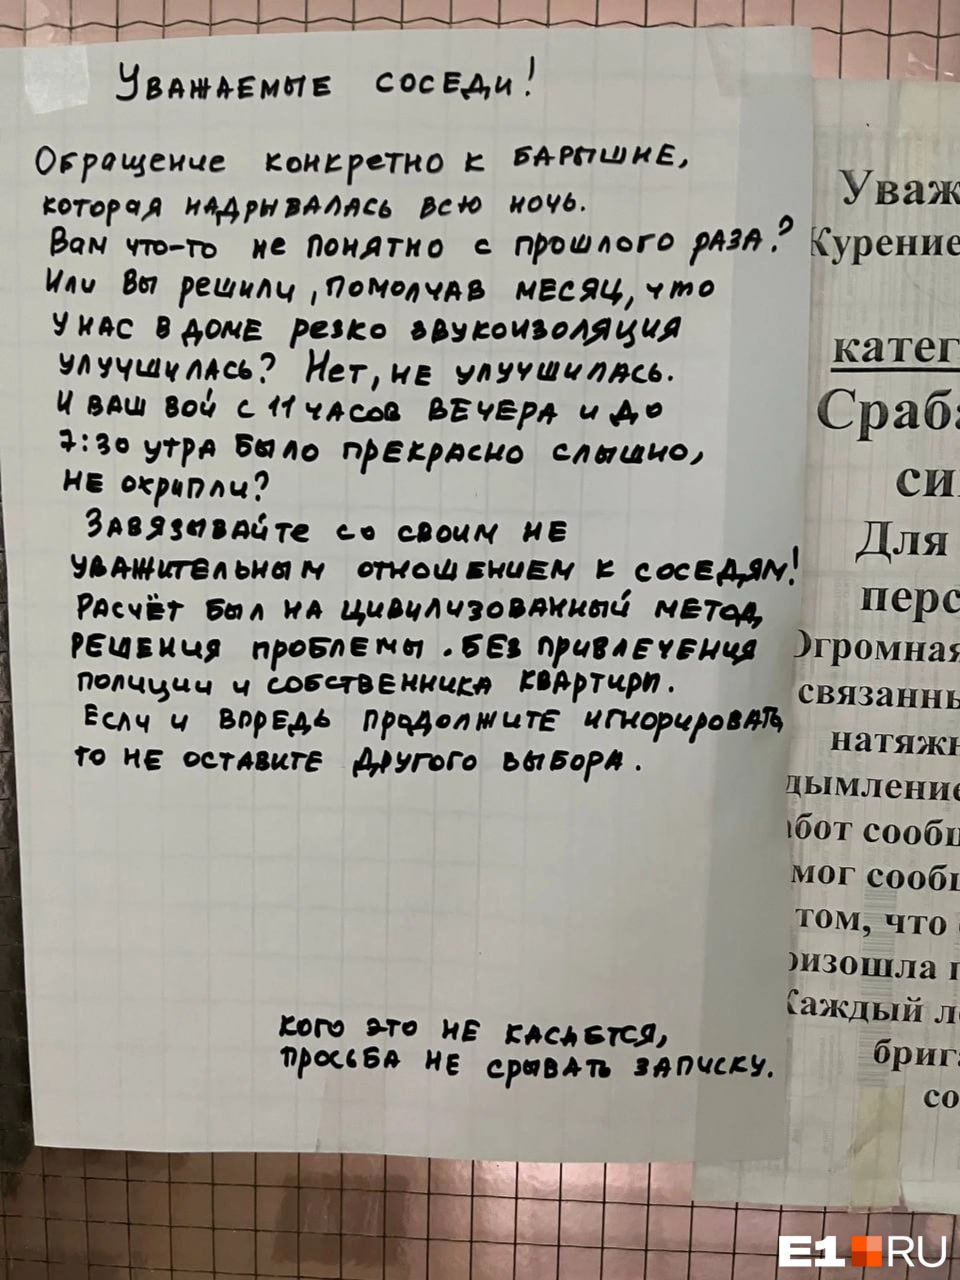 Уважаемые соседи!
Обращение конкретно к барышне,
которая надрывалась всю ночь.
Вам что-то не понятно с прошлого раза?
Или Вы решили, помолчав месяц, что
у нас в доме резко звукоизоляция
улучшилась? Нет, не улучшилась.
И ваш вой с 11 часов вечера и до
7:30 утра было прекрасно слышно,
не охрипли?
Завязывайте со своим не
уважительным отношением к соседям!
Расчёт был на цивилизованный метод
решения проблемы. Без привлечения
полиции и собственника квартирп.
Если и впредь продолжите игнорировать,
то не оставите другого выбора.
Кого это не касается,
просьба не срывать записку.
Уваж
Курение
катег
Сраба
си
Для
перс
Огромная
связанны
натяжн
дымление
бот сообщ
мог сообщ
том, что
оизошла п
Каждый л
брига
со
E1.RU